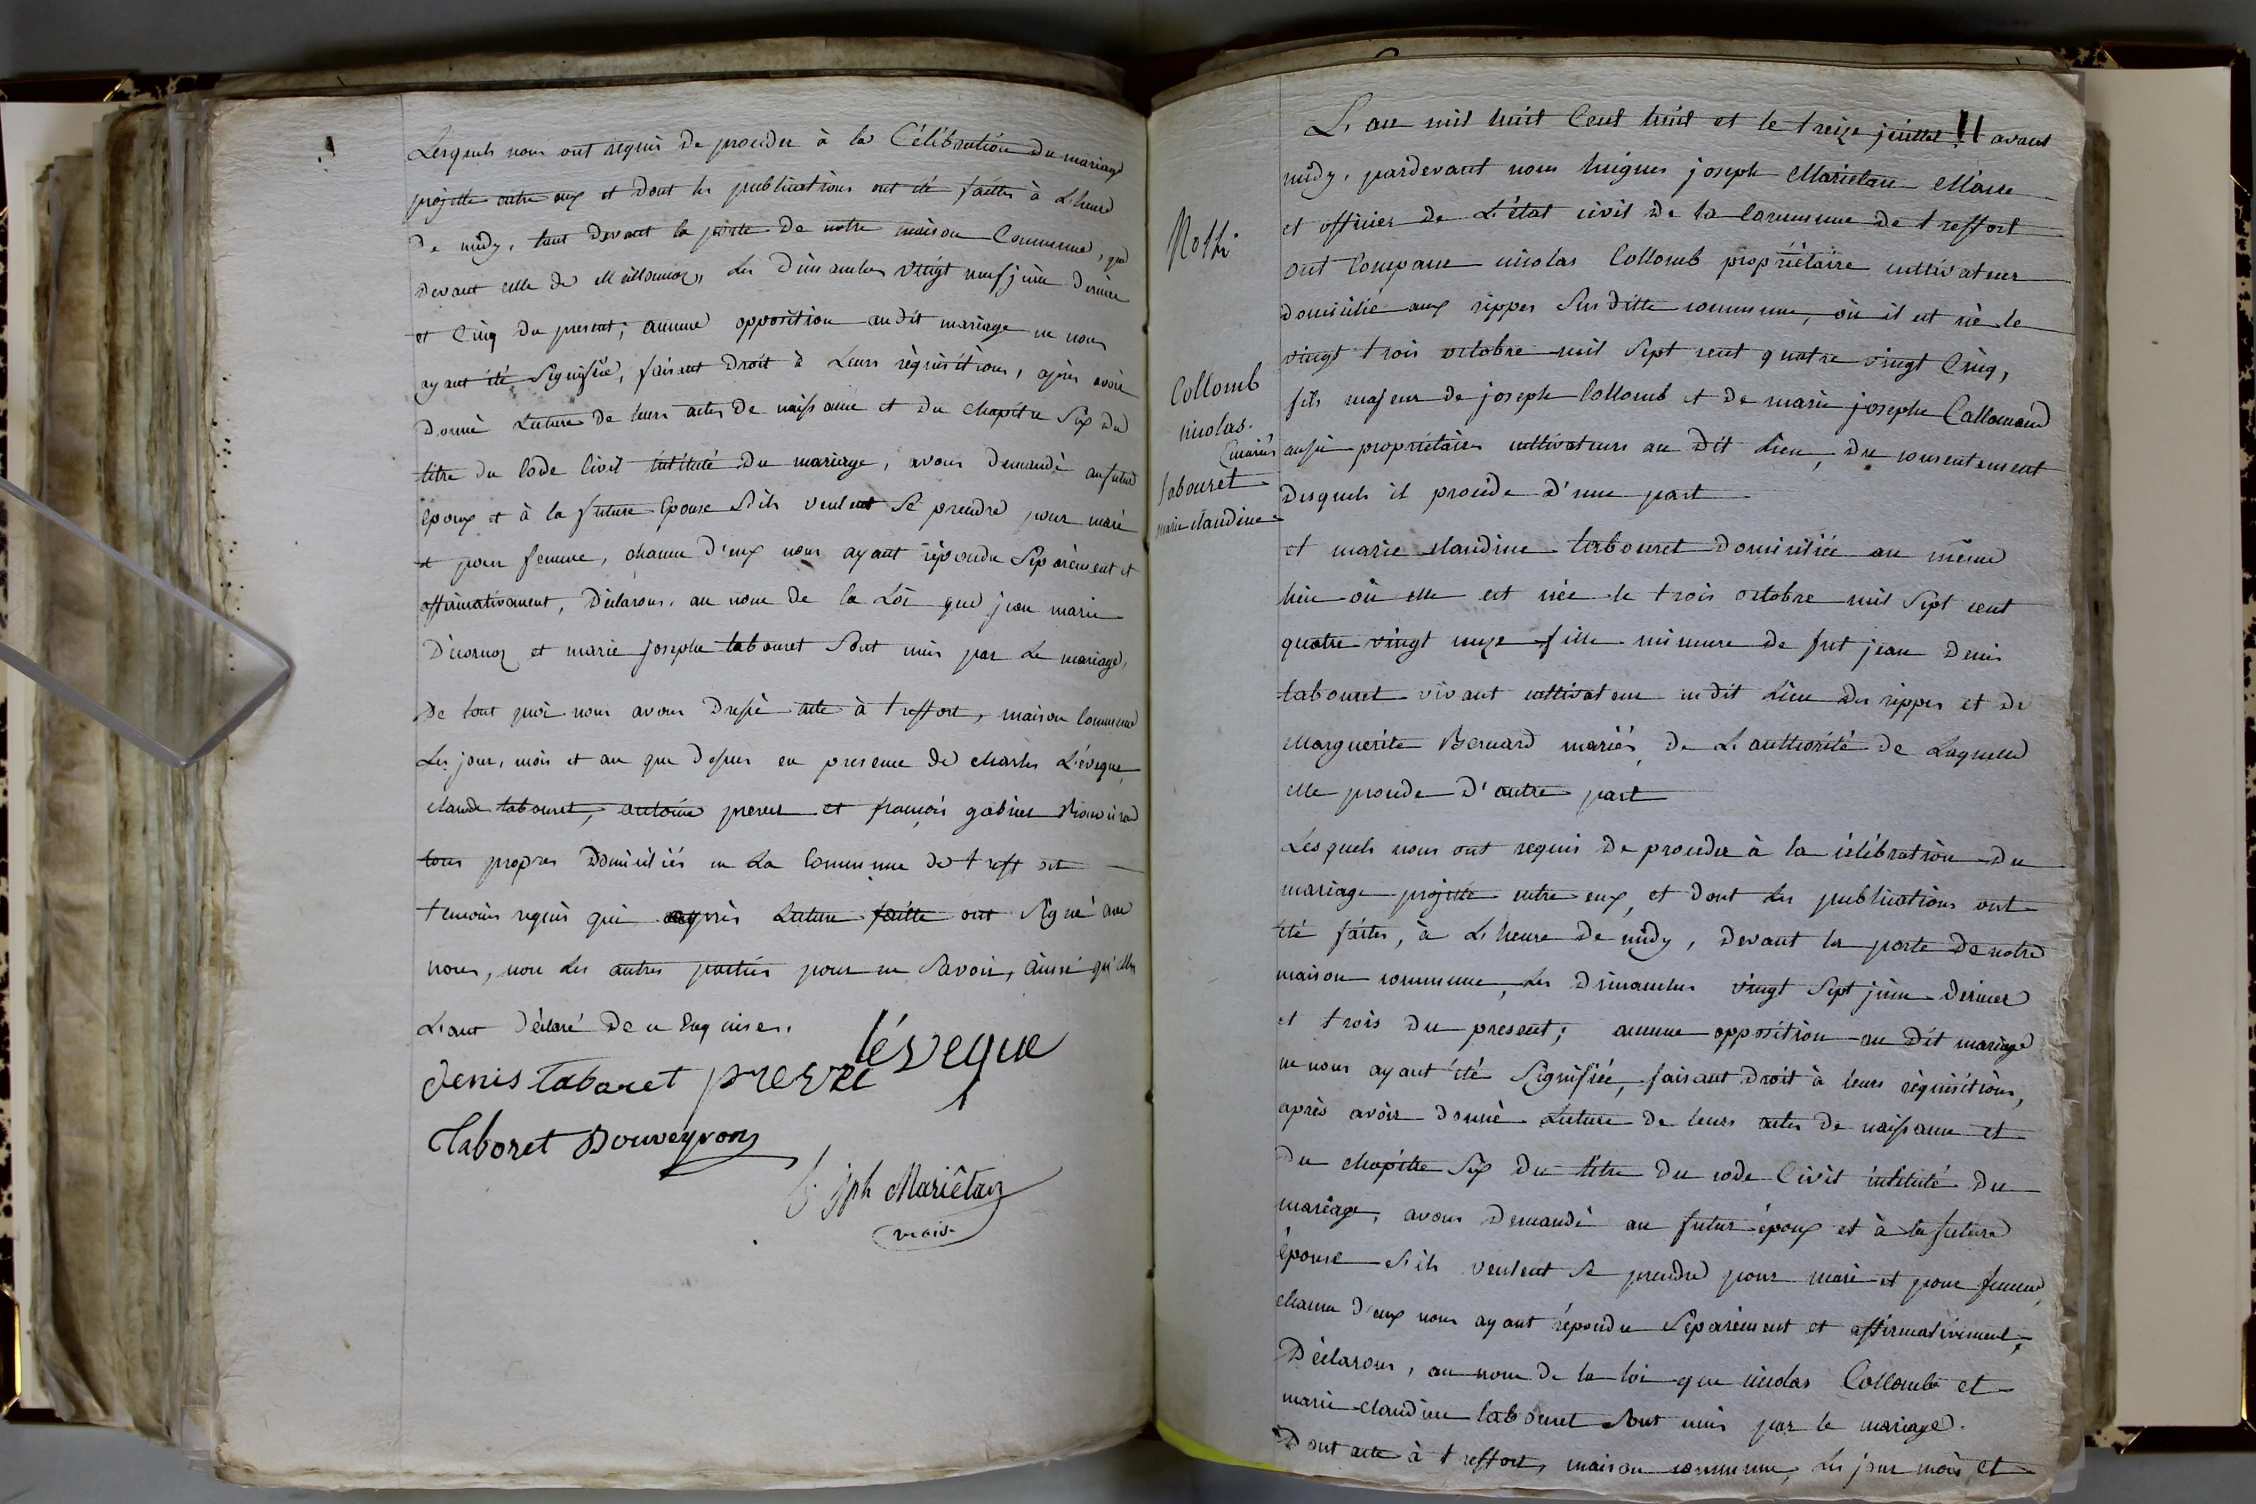 Lesquels nous ont requis de proceder à la Célébration du mariage
projetté entre eux et dont les publications ont été faittes à L'heure
de midy, tant devant la porte de notre maison Commune, que
devant celle de Meillonnaz, les Dimanches vingt neuf juin dernier
et Cinq du present; aucune opposition au dit mariage ne nous
ayant été Signifiée, faisant droit à Leurs réquisitions, après avoir
Donné Lecture de leurs actes de naissance et du chapitre Six du
titre du Code Civil intitulé du mariage, avons demandé au futur
époux et à la future épouse S'ils veulent se prendre pour mari
et pour femme, chacun d'eux nous ayant répondu Séparément et
affirmativement, Déclarons, au nom de la Loi que jean marie
Décornoz et marie josephe tabouret Sont unis par Le mariage,
De tout quoi nous avons Dressé acte à treffort, maison Commune
Les jour, mois et an que dessus en presence de charles L'évêque
claude tabouret, antoine prevre et françois gabriel
tous propres Domiciliés en La Commune de treffort
temoins requis qui après Lecture faitte ont Signé avec
nous, non les autres parties pour ne Savoir, ainsi qu'elles
L'ont déclaré De ce Enquises.
lévêque
denis tabouret prevre
taboret Douveyron
h. jph Mariêtan
maire
L'an mil huit Cent huit et le treize juillet avant
midy, pardevant nous hugues joseph Mariétan Maire
et officier de L'état civil de la Commune de treffort
ont Comparu nicolas Collomb propriétaire cultivateur
domicilié aux rippes Sus ditte commune, où il est né le
vingt trois octobre mil Sept cent quatre vingt Cinq,
fils majeur de joseph Collomb et de marie josephe Callamand
aussi propriétaires cultivateurs au dit Lieu, du consentement
desquels il procède d'une part
et marie claudine tabouret domiciliée au même
lieu où elle est née le trois octobre mil Sept cent
quatre vingt onze fille mineure de fut jean denis
tabouret vivant cultivateur au dit Lieu des rippes et de
Marguerite Bernard mariés, de L'authorité de Laquelle
elle procède d'autre part
Lesquels nous ont requis de proceder à la célébration du
mariage projetté entre eux, et dont les publications ont
été faites, à L'heure de midy, devant la porte de notre
maison commune, les Dimanches vingt Sept juin dernier
et trois du present; aucune opposition au dit mariage
ne nous ayant été Signifiée, faisant droit à leurs réquisitions,
après avoir donné Lecture de leurs actes de naissance et
du chapitre Six du titre du code Civil intitulé du
mariage, avons demandé au futur époux et à la future
épouse S'ils veulent se prendre pour mari et pour femme,
chacun d'eux nous ayant répondu Séparément et affirmativement,
Déclarons, au nom de la loi que nicolas Collomb et
marie claudine tabouret Sont unis par le mariage.
Dont acte à treffort, maison commune, les jour mois et
Collomb
nicolas.
mariés
tabouret
marie claudine